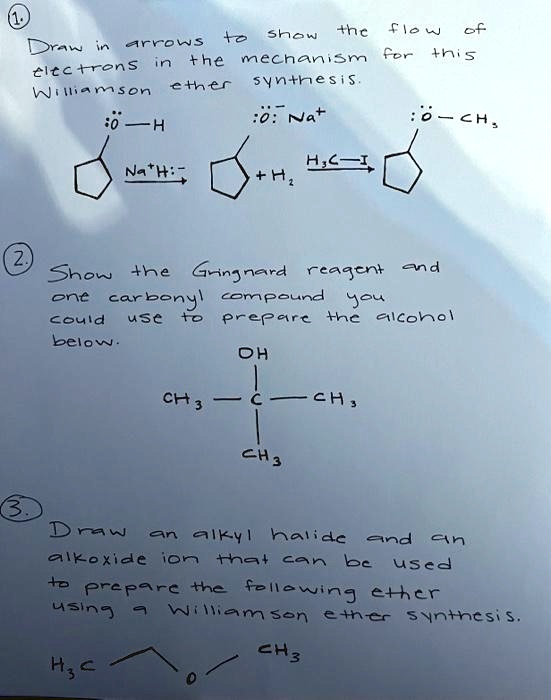 1.
Draw in arrows to show the flow of
electrons in the mechanism for this
Williamson ether synthesis.
:Ö—H :Ö:⁻ Na⁺ :Ö—CH₃
Na⁺H:⁻ + H₂ H₃C—I
2.
Show the Gringnard reagent and
one carbonyl compound you
could use to prepare the alcohol
below.
OH
CH₃ — C — CH₃
CH₃
3.
Draw an alkyl halide and an
alkoxide ion that can be used
to prepare the following ether
using a Williamson ether synthesis.
H₃C O CH₃